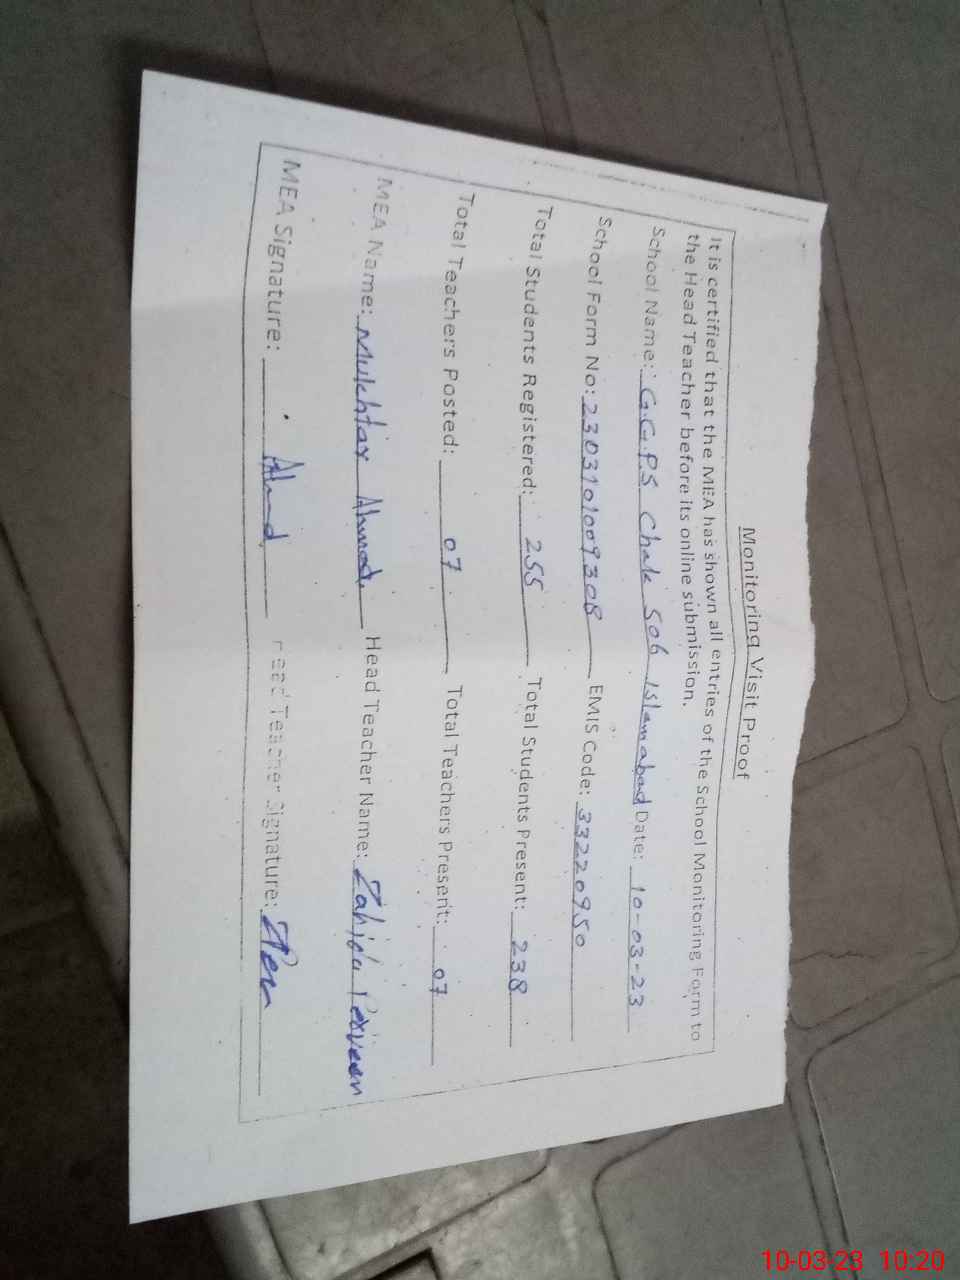 Monitoring Visit Proof
It is certified that the MEA has shown all entries of the School Monitoring Form to
the Head Teacher before its online submission.
School Name: G.G.P.S Chak 506 Islamabad Date: 10-03-23
School Form No: 2303101009308 EMIS Code: 33220950
Total Students Registered: 255 Total Students Present: 238
Total Teachers Posted: 07 Total Teachers Present: 07
MEA Name: Mukhtar Ahmad. Head Teacher Name: Zahida Parveen
MEA Signature: Ahmad Head Teacher Signature:
10-03-23 10:20